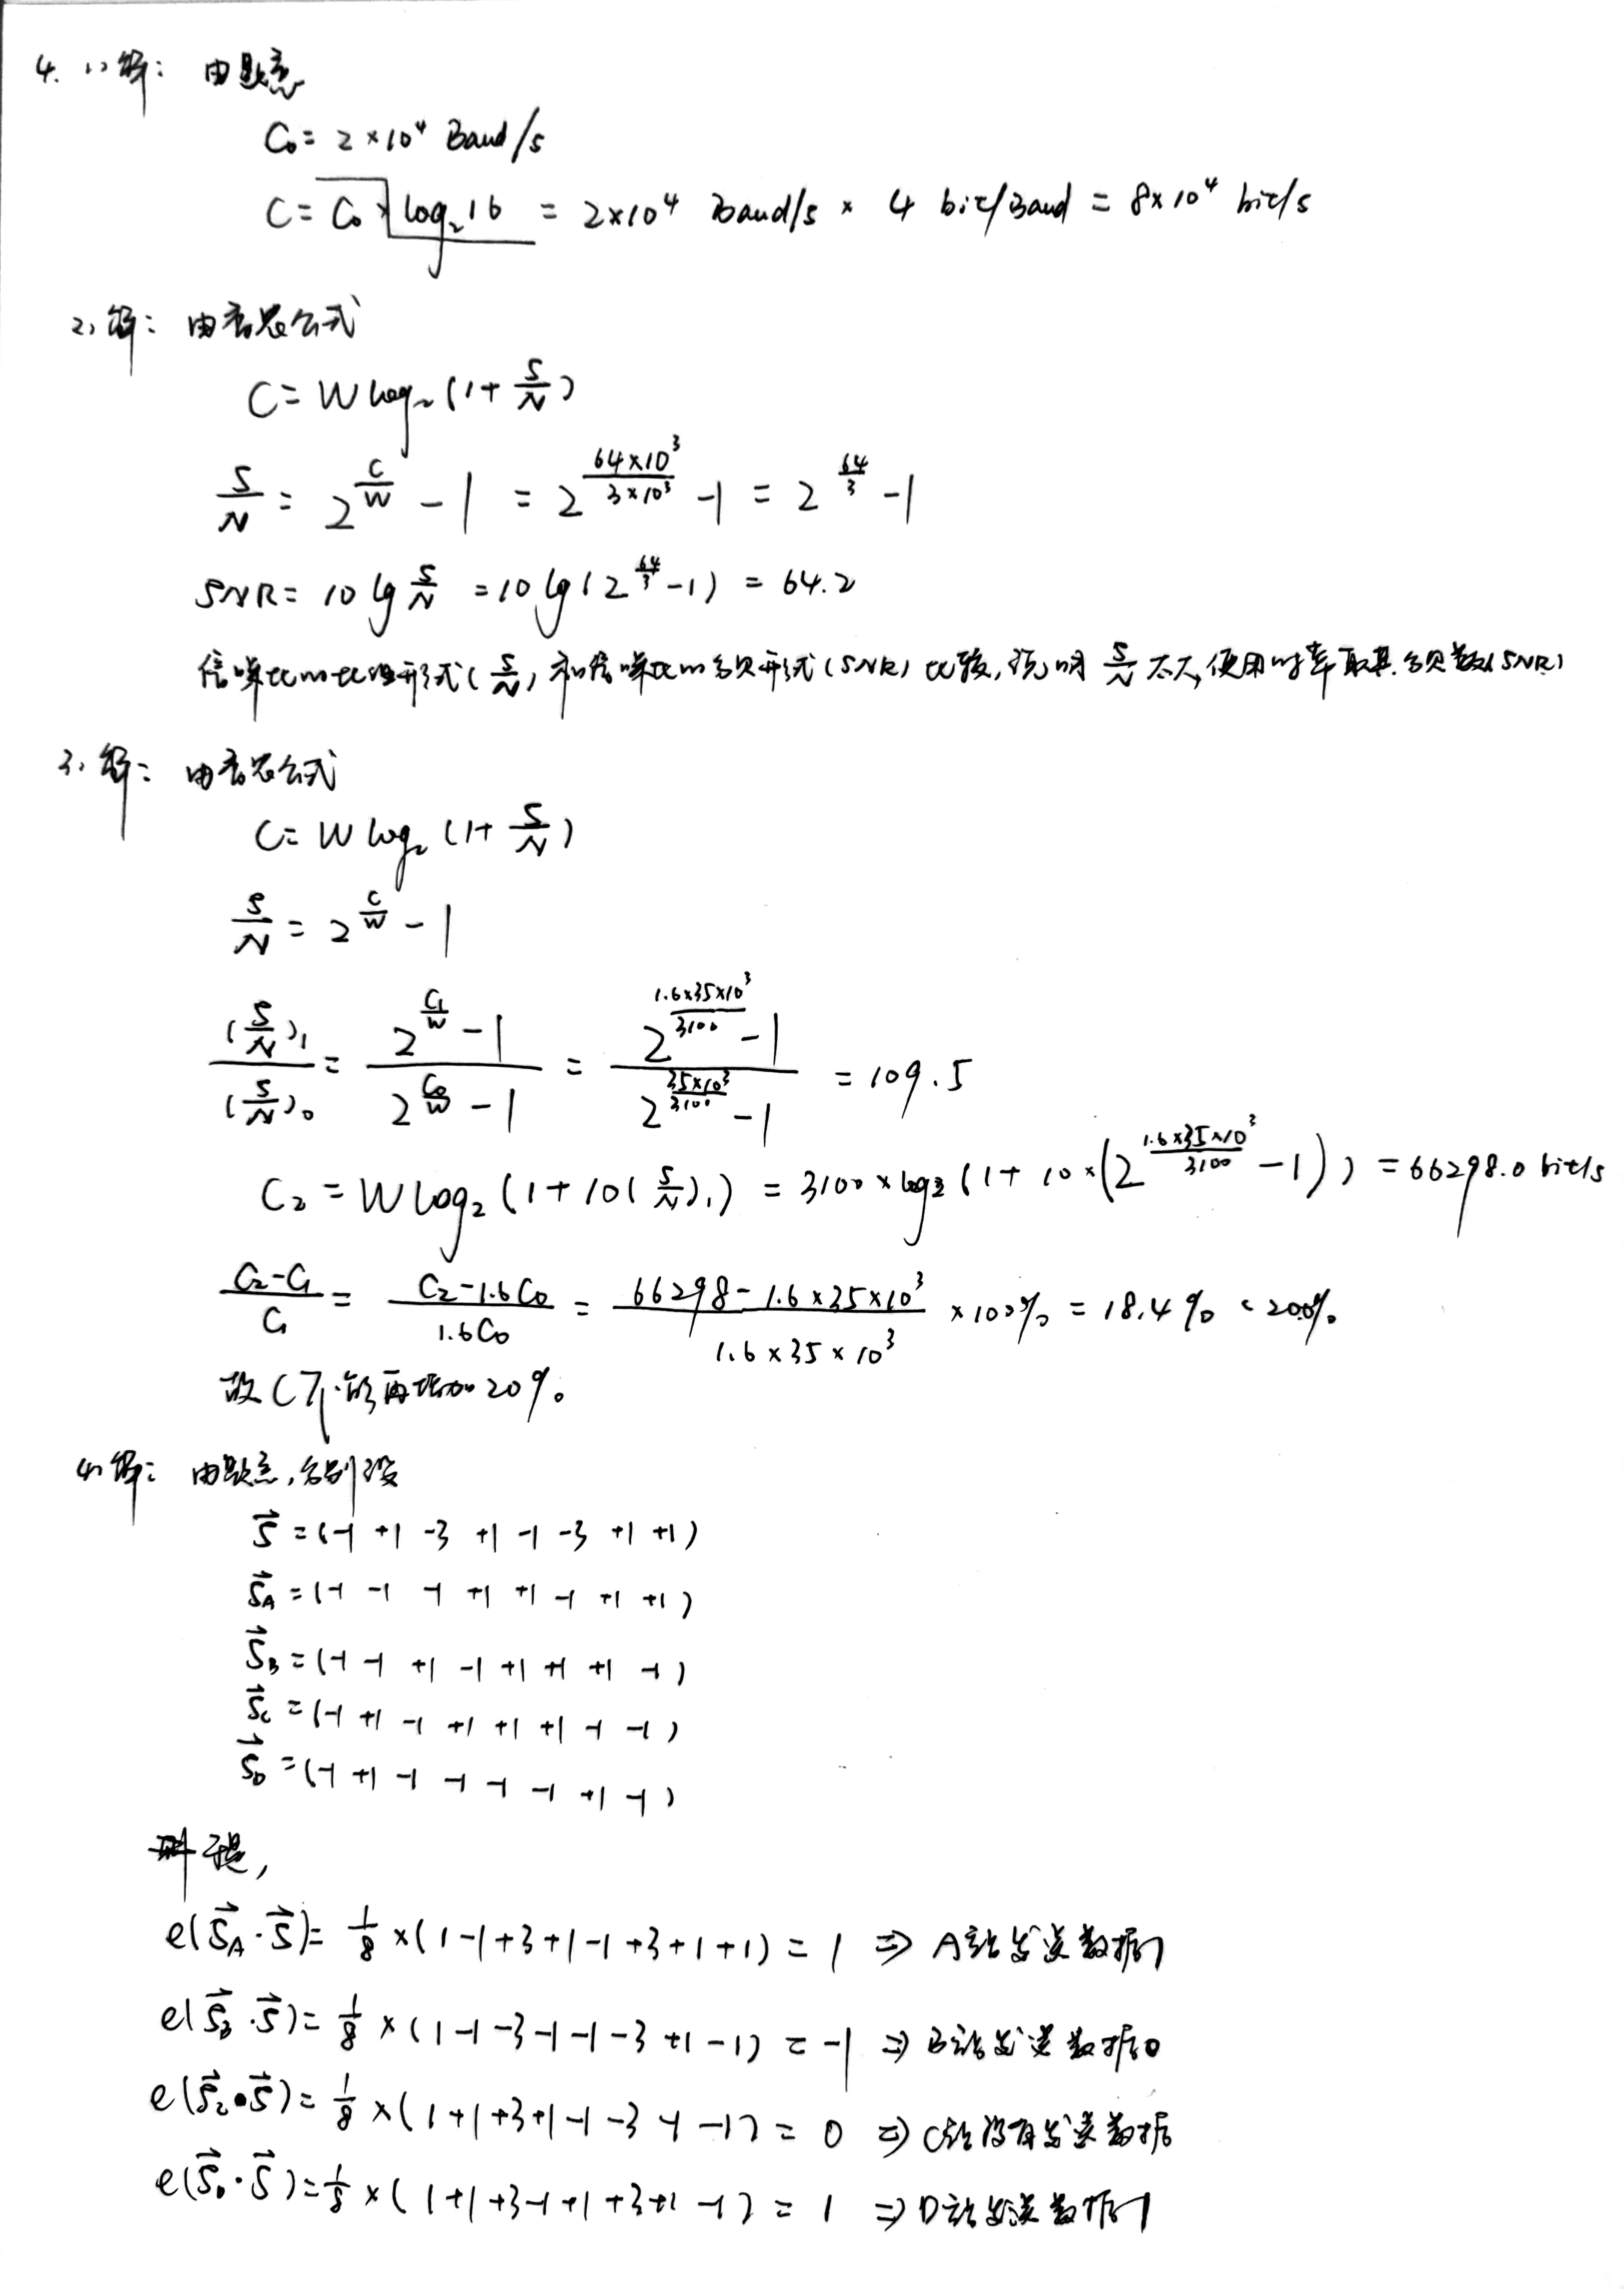 4. 1) 解: 由题意
C₀ = 2×10⁴ Baud/s
C = C₀ × log₂16 = 2×10⁴ Baud/s × 4 bit/Baud = 8×10⁴ bit/s
2) 解: 由香农公式
C = W log₂(1+S/N)
S/N = 2^(C/W) - 1 = 2^(64×10³/3×10³) - 1 = 2^(64/3) - 1
SNR = 10 lg S/N = 10 lg(2^(64/3) - 1) = 64.2
信噪比的比值形式(S/N)和信噪比的分贝形式(SNR)比较,说明 S/N 太大,使用时常取其分贝数(SNR)
3) 解: 由香农公式
C = W log₂(1+S/N)
S/N = 2^(C/W) - 1
(S/N)₁/(S/N)₀ = (2^(C₁/W) - 1)/(2^(C₀/W) - 1) = (2^(1.6×35×10³/3100) - 1)/(2^(35×10³/3100) - 1) = 109.5
C₂ = W log₂(1+10(S/N)₁) = 3100×log₂(1+10×(2^(1.6×35×10³/3100) - 1)) = 66298.0 bit/s
(C₂-C₁)/C₁ = (C₂-1.6C₀)/1.6C₀ = (66298 - 1.6×35×10³)/(1.6×35×10³) ×100% = 18.4% < 20.0%
故C不能再增加20%。
4) 解: 由题意,分别设
S⃗ = (-1 +1 -3 +1 -1 -3 +1 +1)
S⃗_A = (-1 -1 -1 +1 +1 -1 +1 +1)
S⃗_B = (-1 -1 +1 -1 +1 +1 +1 -1)
S⃗_C = (-1 +1 -1 +1 +1 +1 -1 -1)
S⃗_D = (-1 +1 -1 -1 -1 -1 +1 -1)
于是,
e(S⃗_A·S⃗) = 1/8 ×(1-1+3+1-1+3+1+1) = 1 ⇒ A站发送数据1
e(S⃗_B·S⃗) = 1/8 ×(1-1-3-1-1-3+1-1) = -1 ⇒ B站发送数据0
e(S⃗_C·S⃗) = 1/8 ×(1+1+3+1-1-3-1-1) = 0 ⇒ C站没有发送数据
e(S⃗_D·S⃗) = 1/8 ×(1+1+3-1+1+3+1-1) = 1 ⇒ D站发送数据1